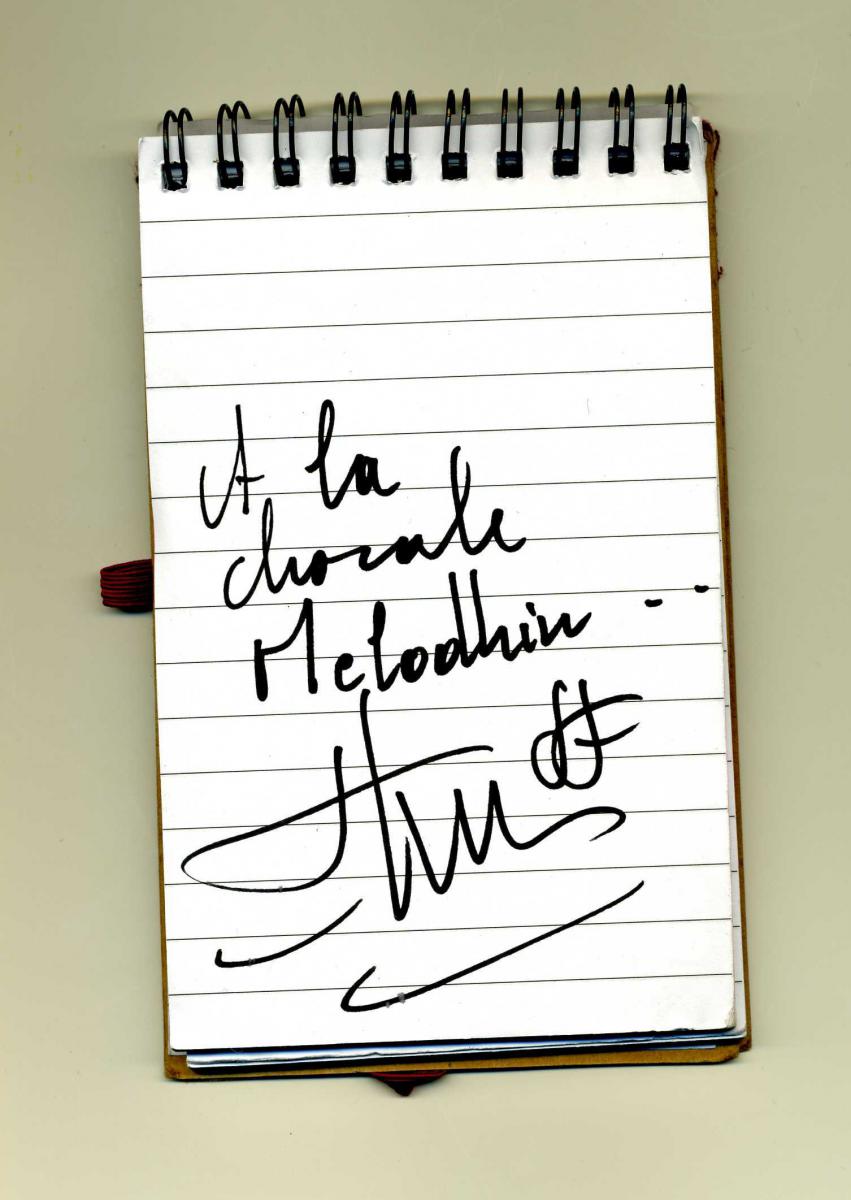 A la
chorale
Melodhin --